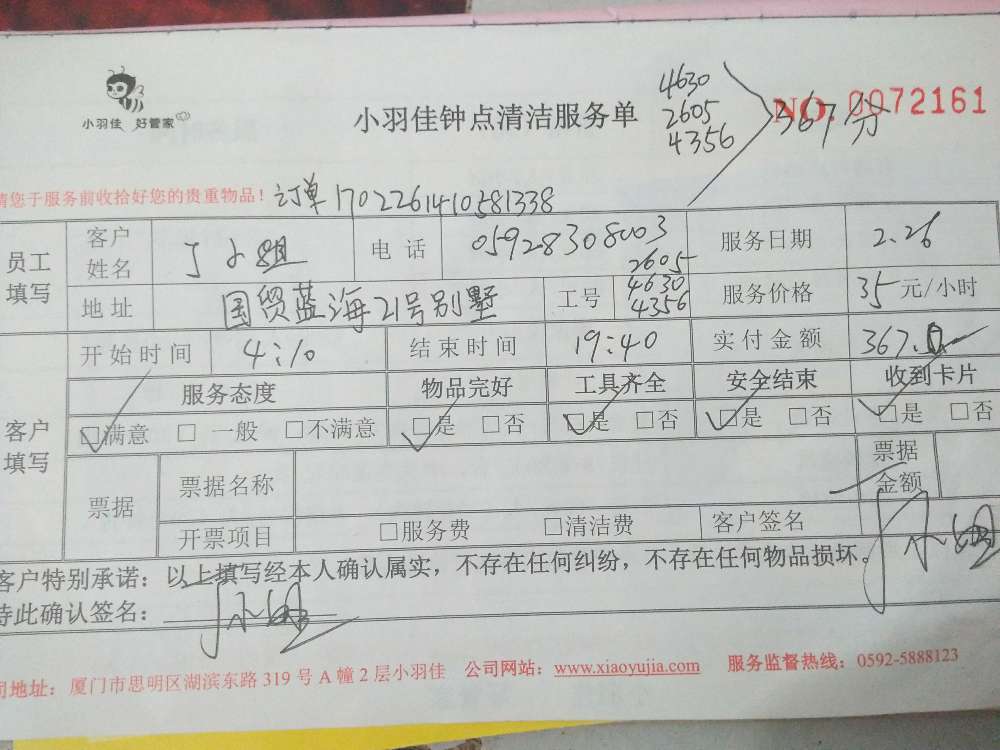 小羽佳 好管家
小羽佳钟点清洁服务单
4630
2605
4356
367分
NO. 0072161
请您于服务前收拾好您的贵重物品！
订单 1702261410581338
员工填写
客户姓名
丁小姐
电话
05928308003
服务日期
2.26
地址
国贸蓝海21号别墅
工号
2605
4630
4356
服务价格
35 元/小时
开始时间
4:10
结束时间
19:40
实付金额
367.0
客户填写
服务态度
物品完好
工具齐全
安全结束
收到卡片
☑满意 □ 一般 □不满意
☑是 □否
☑是 □否
☑是 □否
☑是 □否
票据
票据名称
票据金额
开票项目
□服务费 □清洁费
客户签名
丁小姐
客户特别承诺：以上填写经本人确认属实，不存在任何纠纷，不存在任何物品损坏。
特此确认签名：丁小姐
司地址：厦门市思明区湖滨东路 319 号 A 幢 2 层小羽佳 公司网站：www.xiaoyujia.com 服务监督热线：0592-5888123